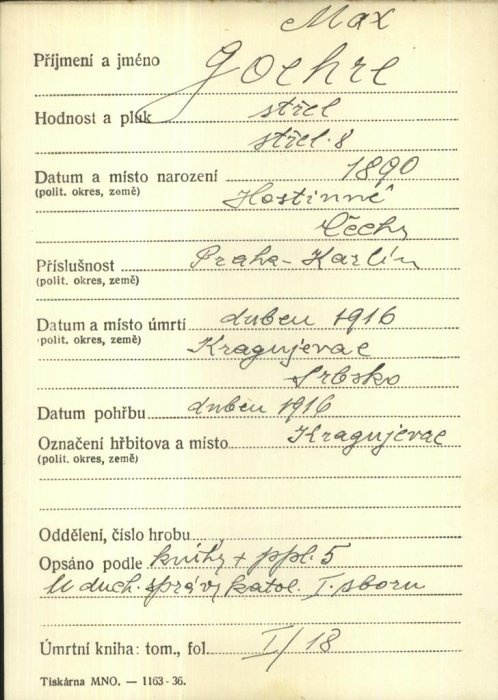 Max
Příjmení a jméno Goehre
Hodnost a pluk střel
střel. 8
Datum a místo narození 1890
(polit. okres, země) Hostinné
Čechy
Příslušnost Praha-Karlín
(polit. okres, země)
Datum a místo úmrtí duben 1916
(polit. okres, země) Kragujevac
Srbsko
Datum pohřbu duben 1916
Označení hřbitova a místo Kragujevac
(polit. okres, země)
Oddělení, číslo hrobu
Opsáno podle knihy + ppl. 5
duch. správy katol. I. sboru
Úmrtní kniha: tom., fol. I/18
Tiskárna MNO. — 1163-36.